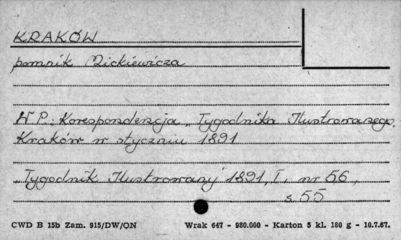 KRAKÓW
pomnik Mickiewicza
W.P. Korespondencja „Tygodnika Ilustrowanego.
Kraków w styczniu 1891
„Tygodnik Ilustrowany" 1891, I, nr 56,
s. 55
CWD B 15b Zam. 915/DW/ON Wrak 647 - 980.000 - Karton 5 kl. 180 g - 10.7.67.